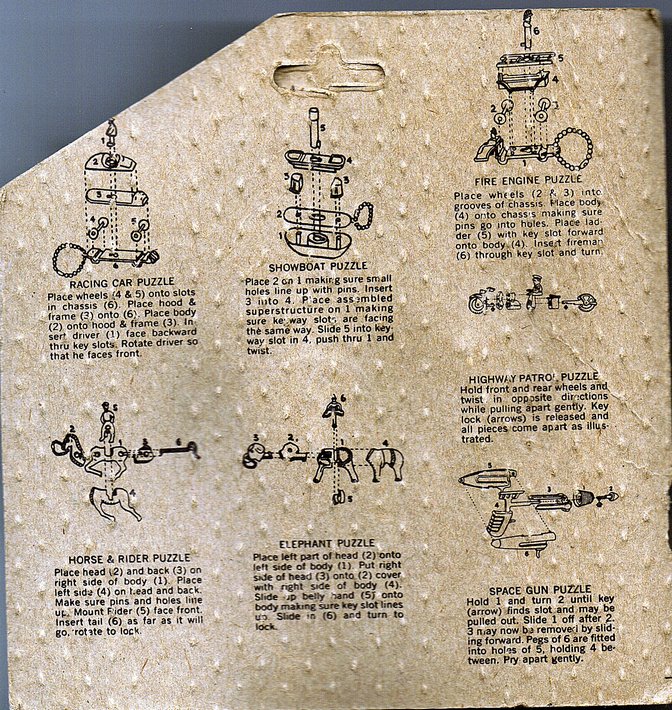 RACING CAR PUZZLE
Place wheels (4 & 5) onto slots
in chassis (6). Place hood &
frame (3) onto (6). Place body
(2) onto hood & frame (3). In-
sert driver (1) face backward
thru key slots. Rotate driver so
that he faces front.
SHOWBOAT PUZZLE
Place 2 on 1 making sure small
holes line up with pins. Insert
3 into 4. Place assembled
superstructure on 1 making
sure keyway slots are facing
the same way. Slide 5 into key-
way slot in 4, push thru 1 and
twist.
FIRE ENGINE PUZZLE
Place wheels (2 & 3) into
grooves of chassis. Place body
(4) onto chassis making sure
pins go into holes. Place lad-
der (5) with key slot forward
onto body (4). Insert fireman
(6) through key slot and turn.
HIGHWAY PATROL PUZZLE
Hold front and rear wheels and
twist in opposite directions
while pulling apart gently. Key
lock (arrows) is released and
all pieces come apart as illus-
trated.
HORSE & RIDER PUZZLE
Place head (2) and back (3) on
right side of body (1). Place
left side (4) on head and back.
Make sure pins and holes line
up. Mount Rider (5) face front.
Insert tail (6) as far as it will
go, rotate to lock.
ELEPHANT PUZZLE
Place left part of head (2) onto
left side of body (1). Put right
side of head (3) onto (2) cover
with right side of body (4).
Slide up belly band (5) onto
body making sure key slot lines
up. Slide in (6) and turn to
lock.
SPACE GUN PUZZLE
Hold 1 and turn 2 until key
(arrow) finds slot and may be
pulled out. Slide 1 off after 2.
3 may now be removed by slid-
ing forward. Pegs of 6 are fitted
into holes of 5, holding 4 be-
tween. Pry apart gently.